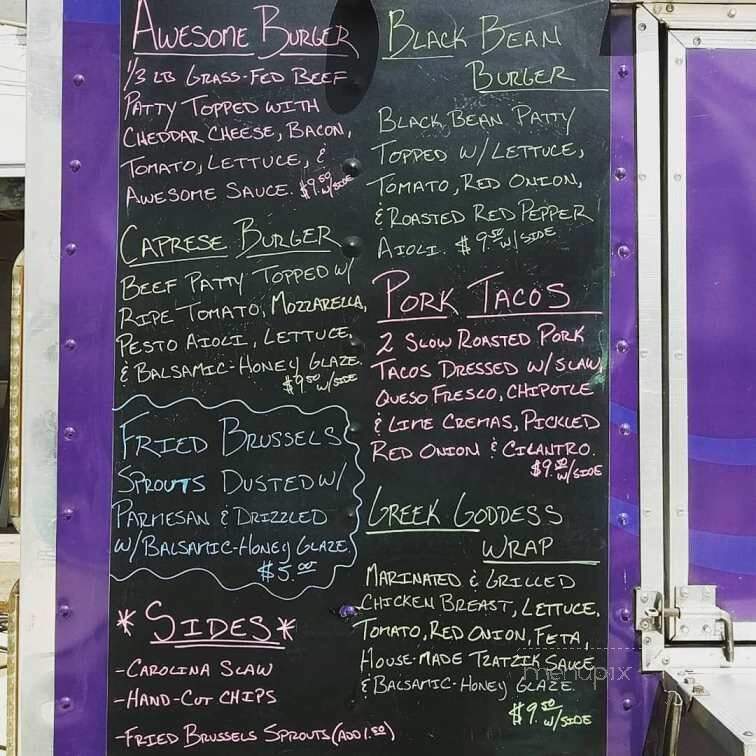 AWESOME BURGER
1/3 LB GRASS-FED BEEF
PATTY TOPPED WITH
CHEDDAR CHEESE, BACON,
TOMATO, LETTUCE, &
AWESOME SAUCE. $9.50 W/SIDE
CAPRESE BURGER
BEEF PATTY TOPPED W/
RIPE TOMATO, MOZZARELLA,
PESTO AIOLI, LETTUCE,
& BALSAMIC-HONEY GLAZE.
$9.50 W/SIDE
FRIED BRUSSELS
SPROUTS DUSTED W/
PARMESAN & DRIZZLED
W/BALSAMIC-HONEY GLAZE.
$5.00
*SIDES*
-CAROLINA SLAW
-HAND-CUT CHIPS
-FRIED BRUSSELS SPROUTS (ADD 1.50)
BLACK BEAN
BURGER
BLACK BEAN PATTY
TOPPED W/LETTUCE,
TOMATO, RED ONION,
& ROASTED RED PEPPER
AIOLI. $9.50 W/SIDE
PORK TACOS
2 SLOW ROASTED PORK
TACOS DRESSED W/SLAW,
QUESO FRESCO, CHIPOTLE
& LIME CREMAS, PICKLED
RED ONION & CILANTRO.
$9.50 W/SIDE
GREEK GODDESS
WRAP
MARINATED & GRILLED
CHICKEN BREAST, LETTUCE,
TOMATO, RED ONION, FETA,
HOUSE-MADE TZATZIK SAUCE
& BALSAMIC-HONEY GLAZE.
$9.50 W/SIDE
menupix